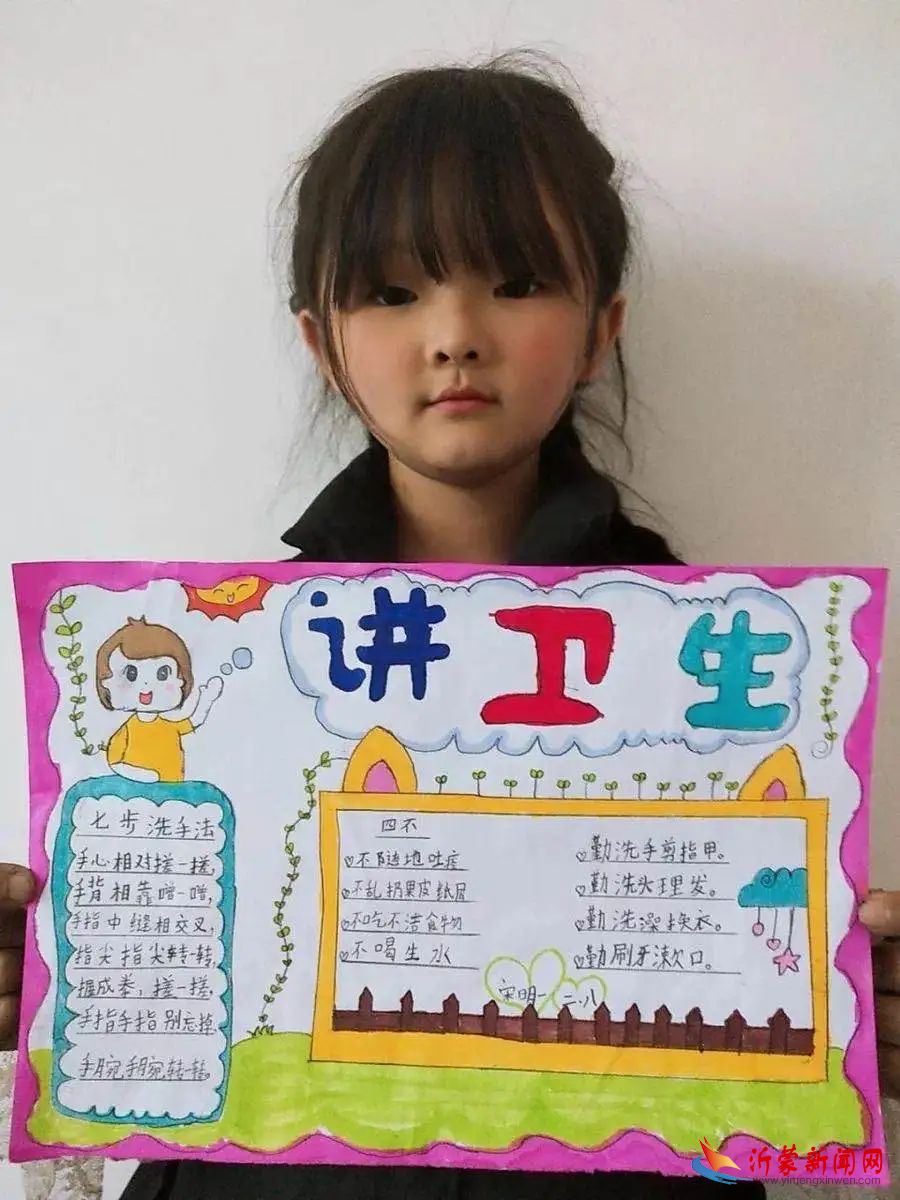 讲卫生
七步洗手法
手心相对搓一搓,
手背相靠噌一噌,
手指中缝相交叉,
指尖指尖转一转,
握成拳,搓一搓,
手指手指别忘掉
手腕手腕转一转。
四不
不随地吐痰
不乱扔果皮纸屑
不吃不洁食物
不喝生水
勤洗手剪指甲。
勤洗头理发。
勤洗澡换衣。
勤刷牙漱口。
二.八
沂蒙新闻网
www.yimengxinwen.com